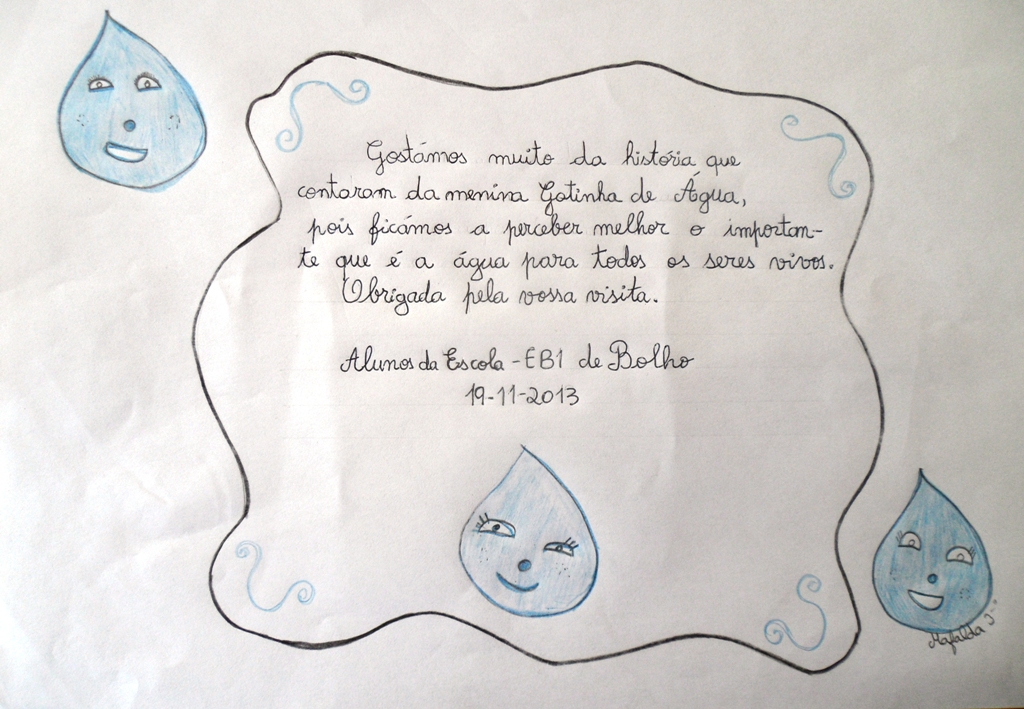 Gostámos muito da história que
contaram da menina Gotinha de Água,
pois ficámos a perceber melhor o importan-
te que é a água para todos os seres vivos.
Obrigada pela vossa visita.
Alunos da Escola - EB1 de Bolho
19-11-2013
Mafalda J.